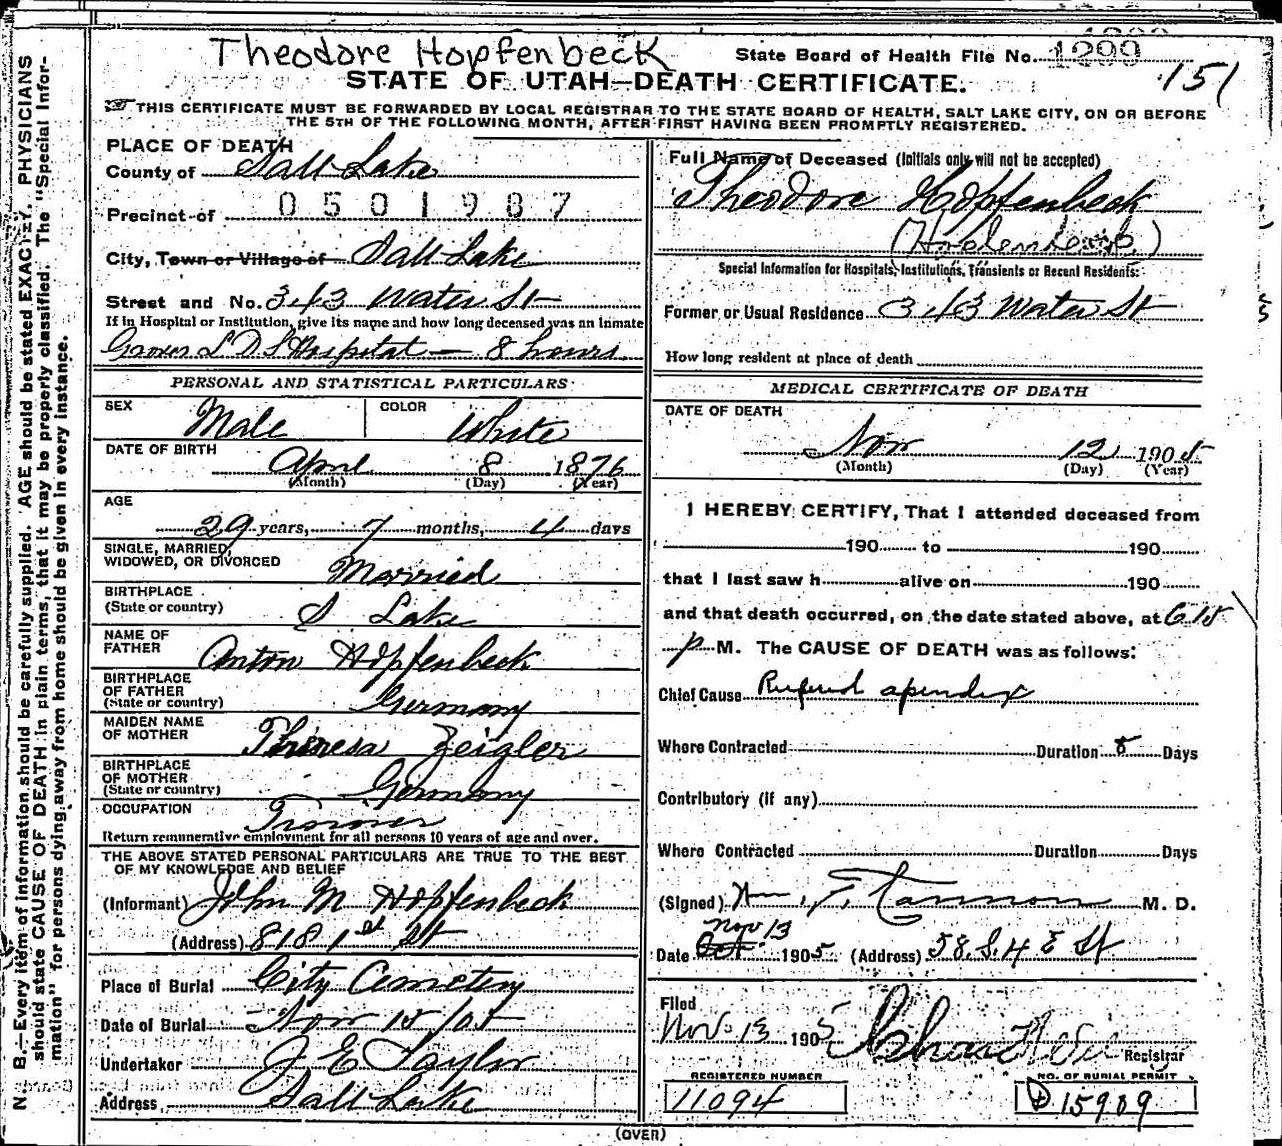 Theodore Hopfenbeck
State Board of Health File No. 1299
151
STATE OF UTAH—DEATH CERTIFICATE.
THIS CERTIFICATE MUST BE FORWARDED BY LOCAL REGISTRAR TO THE STATE BOARD OF HEALTH, SALT LAKE CITY, ON OR BEFORE
THE 5TH OF THE FOLLOWING MONTH, AFTER FIRST HAVING BEEN PROMPTLY REGISTERED.
PLACE OF DEATH
County of Salt Lake
Precinct of 0501987
City, Town or Village of Salt Lake
Street and No. 343 Water St
If in Hospital or Institution, give its name and how long deceased was an inmate
Groves L D S Hospital — 8 hours
PERSONAL AND STATISTICAL PARTICULARS
SEX Male COLOR White
DATE OF BIRTH
April 8 1876
(Month) (Day) (Year)
AGE
29 years, 7 months, 4 days
SINGLE, MARRIED,
WIDOWED, OR DIVORCED Married
BIRTHPLACE
(State or country) S Lake
NAME OF
FATHER Anton Hopfenbeck
BIRTHPLACE
OF FATHER
(State or country) Germany
MAIDEN NAME
OF MOTHER Theresa Zeigler
BIRTHPLACE
OF MOTHER
(State or country) Germany
OCCUPATION
Return remunerative employment for all persons 10 years of age and over.
THE ABOVE STATED PERSONAL PARTICULARS ARE TRUE TO THE BEST
OF MY KNOWLEDGE AND BELIEF
(Informant) John M Hopfenbeck
(Address) 818 1st St
Place of Burial City Cemetery
Date of Burial Nov 15/05
Undertaker J E Taylor
Address Salt Lake
Full Name of Deceased (Initials only will not be accepted)
Theodore Hopfenbeck
Special Information for Hospitals, Institutions, Transients or Recent Residents:
Former or Usual Residence 343 Water St
How long resident at place of death
MEDICAL CERTIFICATE OF DEATH
DATE OF DEATH
Nov 12 1905
(Month) (Day) (Year)
I HEREBY CERTIFY, That I attended deceased from
190 to 190
that I last saw h alive on 190
and that death occurred, on the date stated above, at 6 15
p M. The CAUSE OF DEATH was as follows:
Chief Cause Rupured apendix
Where Contracted Duration 8 Days
Contributory (if any)
Where Contracted Duration Days
(Signed) M. D.
Nov 13
Date Oct 1905 (Address) 58. S. 4 E St
Filed
Nov. 13 1905
Registrar
REGISTERED NUMBER
11094
NO. OF BURIAL PERMIT
D 15909
(OVER)
N. B.—Every item of information should be carefully supplied. AGE should be stated EXACTLY. PHYSICIANS
should state CAUSE OF DEATH in plain terms, that it may be properly classified. The "Special Infor-
mation" for persons dying away from home should be given in every instance.